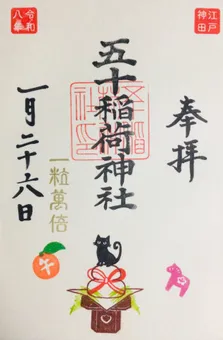 江戸
神田
奉拝
五十稲荷神社
五十稲荷神社
一粒萬倍
一月二十六日
令和
八年
午